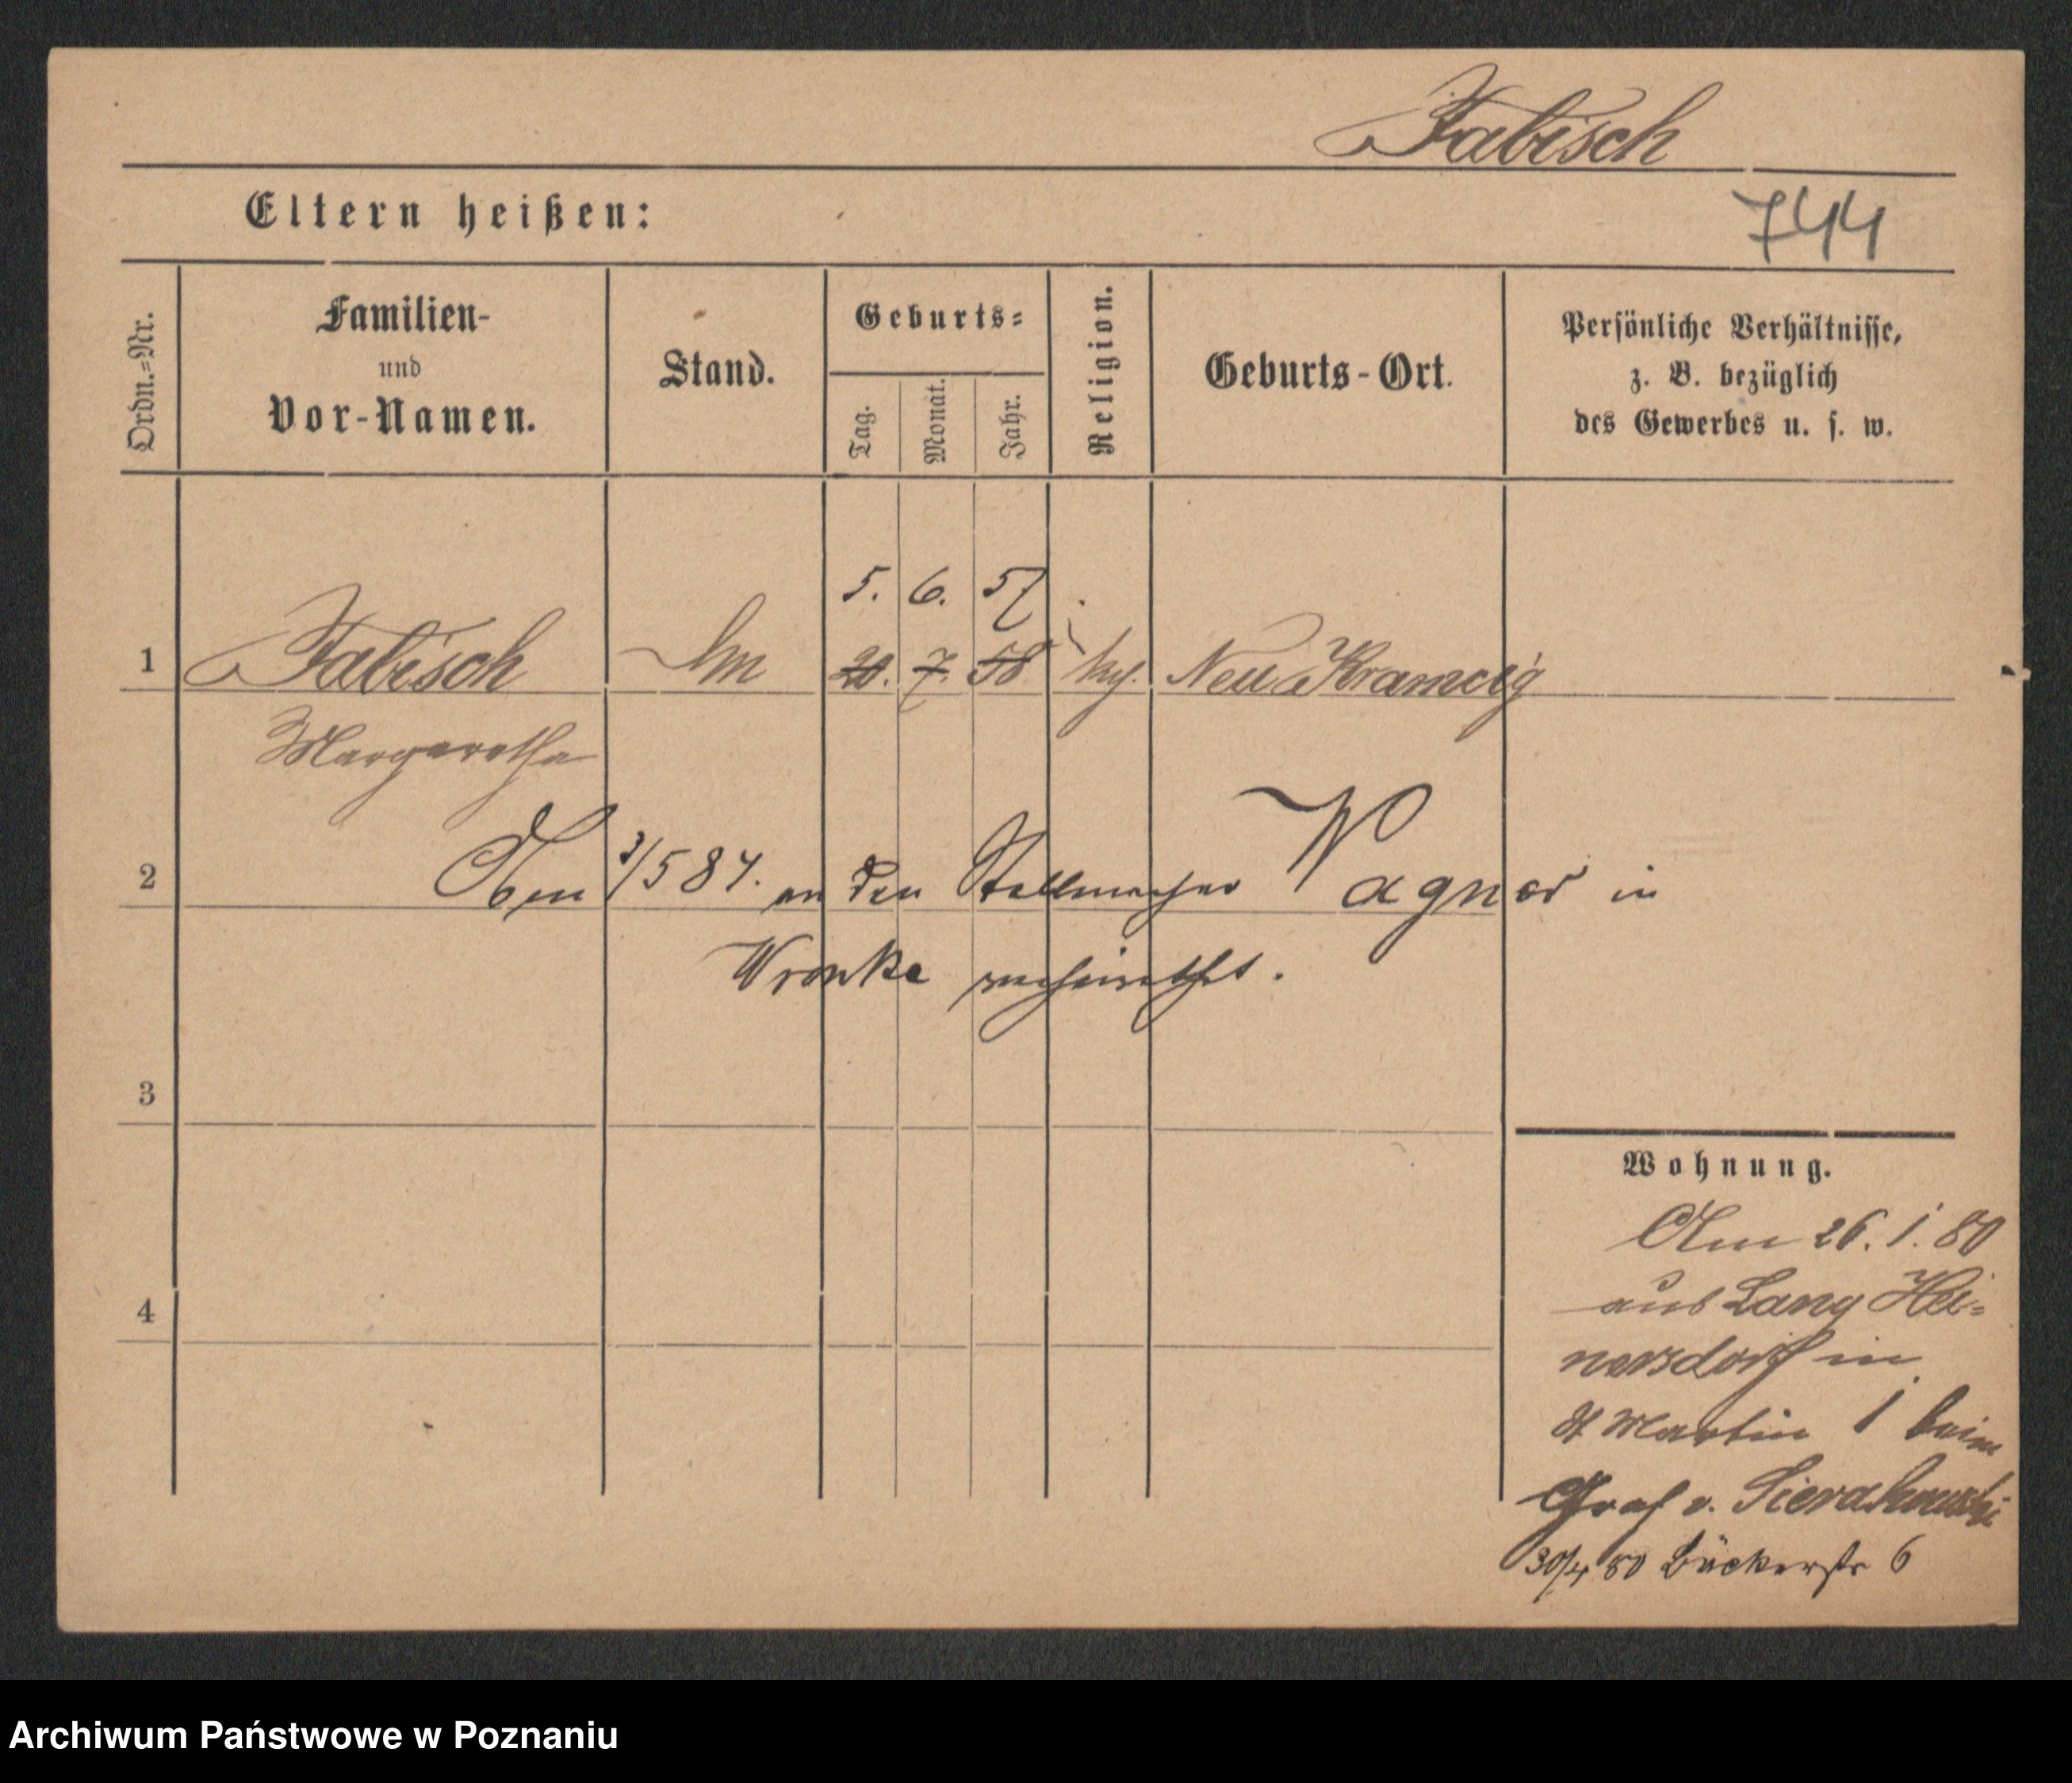 Fabisch
Eltern heißen:
744
Ordn.=Nr.
Familien-
und
Vor-Namen.
Stand.
Geburts=
Tag.
Monat.
Jahr.
Religion.
Geburts-Ort.
Persönliche Verhältnisse,
z. B. bezüglich
des Gewerbes u. s. w.
5. 6. 57
1 Fabisch 20. 7. 58 Neu Kramzig
Margarethe
2 3/5 84. an den Stellmacher Wagner in
Wronke verheirathet.
3
Wohnung.
Am 26. 1. 80
aus Lang Hei=
4
nersdorf in
St Martin 1 beim
Graf v. Sierakowski
30/4 80 Bäckerstr 6
Archiwum Państwowe w Poznaniu